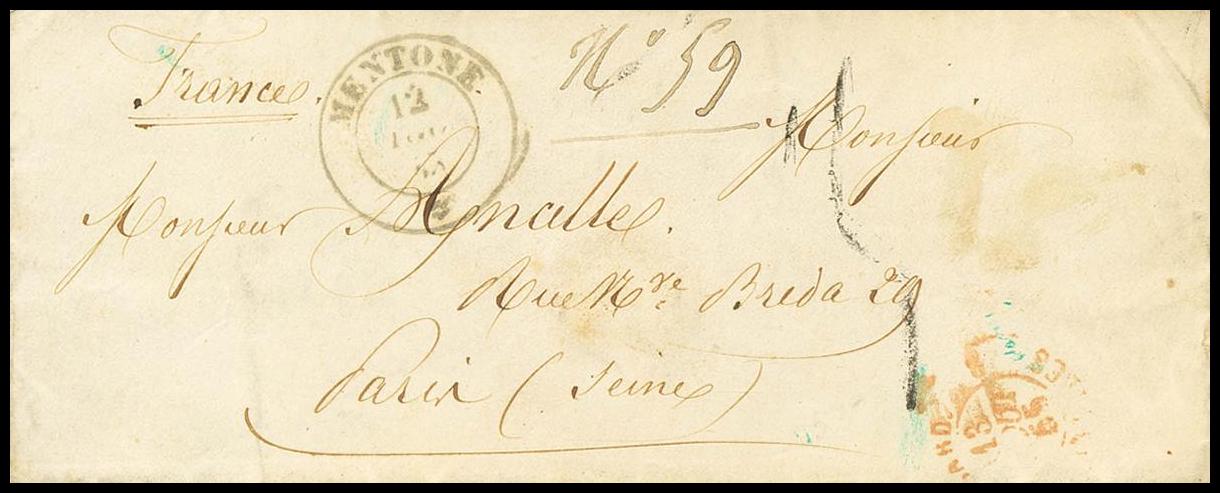 France.
MENTONE
12
No 59
Monsieur
Monsieur
Rue Nve Breda 29
Paris (Seine)
13